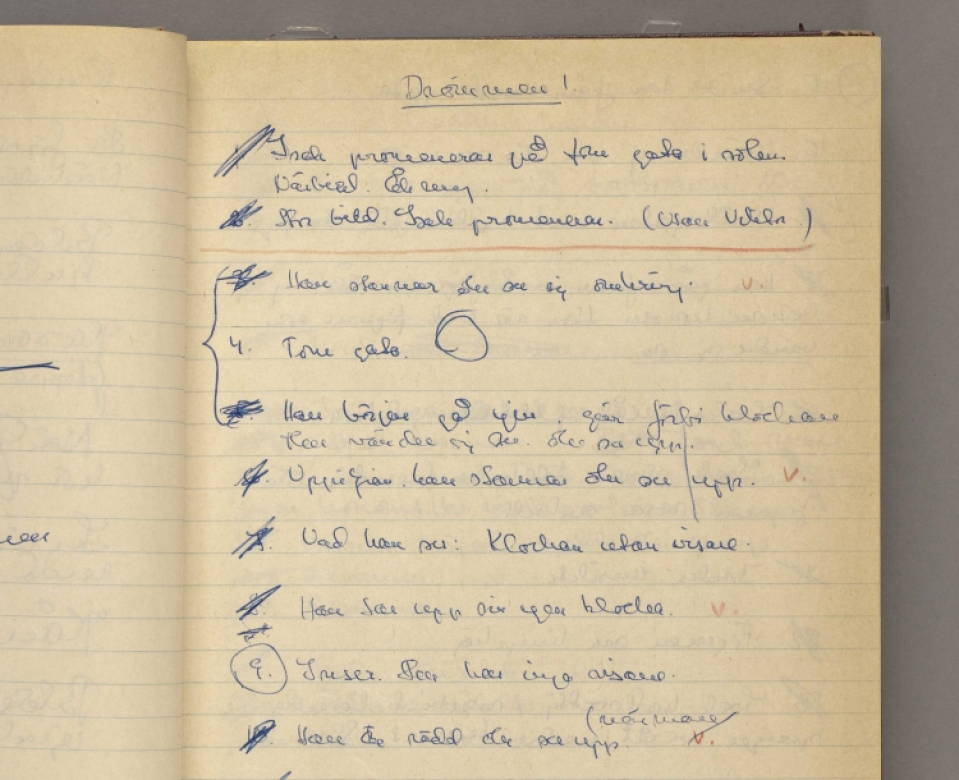 Drömmen!
1. Isak promenerar på tom gata i solen.
Närbild. Åkning.
2. Stor bild. Isak promenerar. (Utan Vikbr)
3. Han stannar och ser sig omkring. v.
4. Tom gata.
5. Han börjar gå igen. går förbi klockan
Han vänder sig om och ser upp.
6. Uppifrån. han stannar och ser upp. v.
7. Vad han ser: Klockan utan visare.
8. Han tar upp sin egen klocka. v.
9. Insert. Den har inga visare.
(närmare)
10. Han är rädd och ser upp. v.